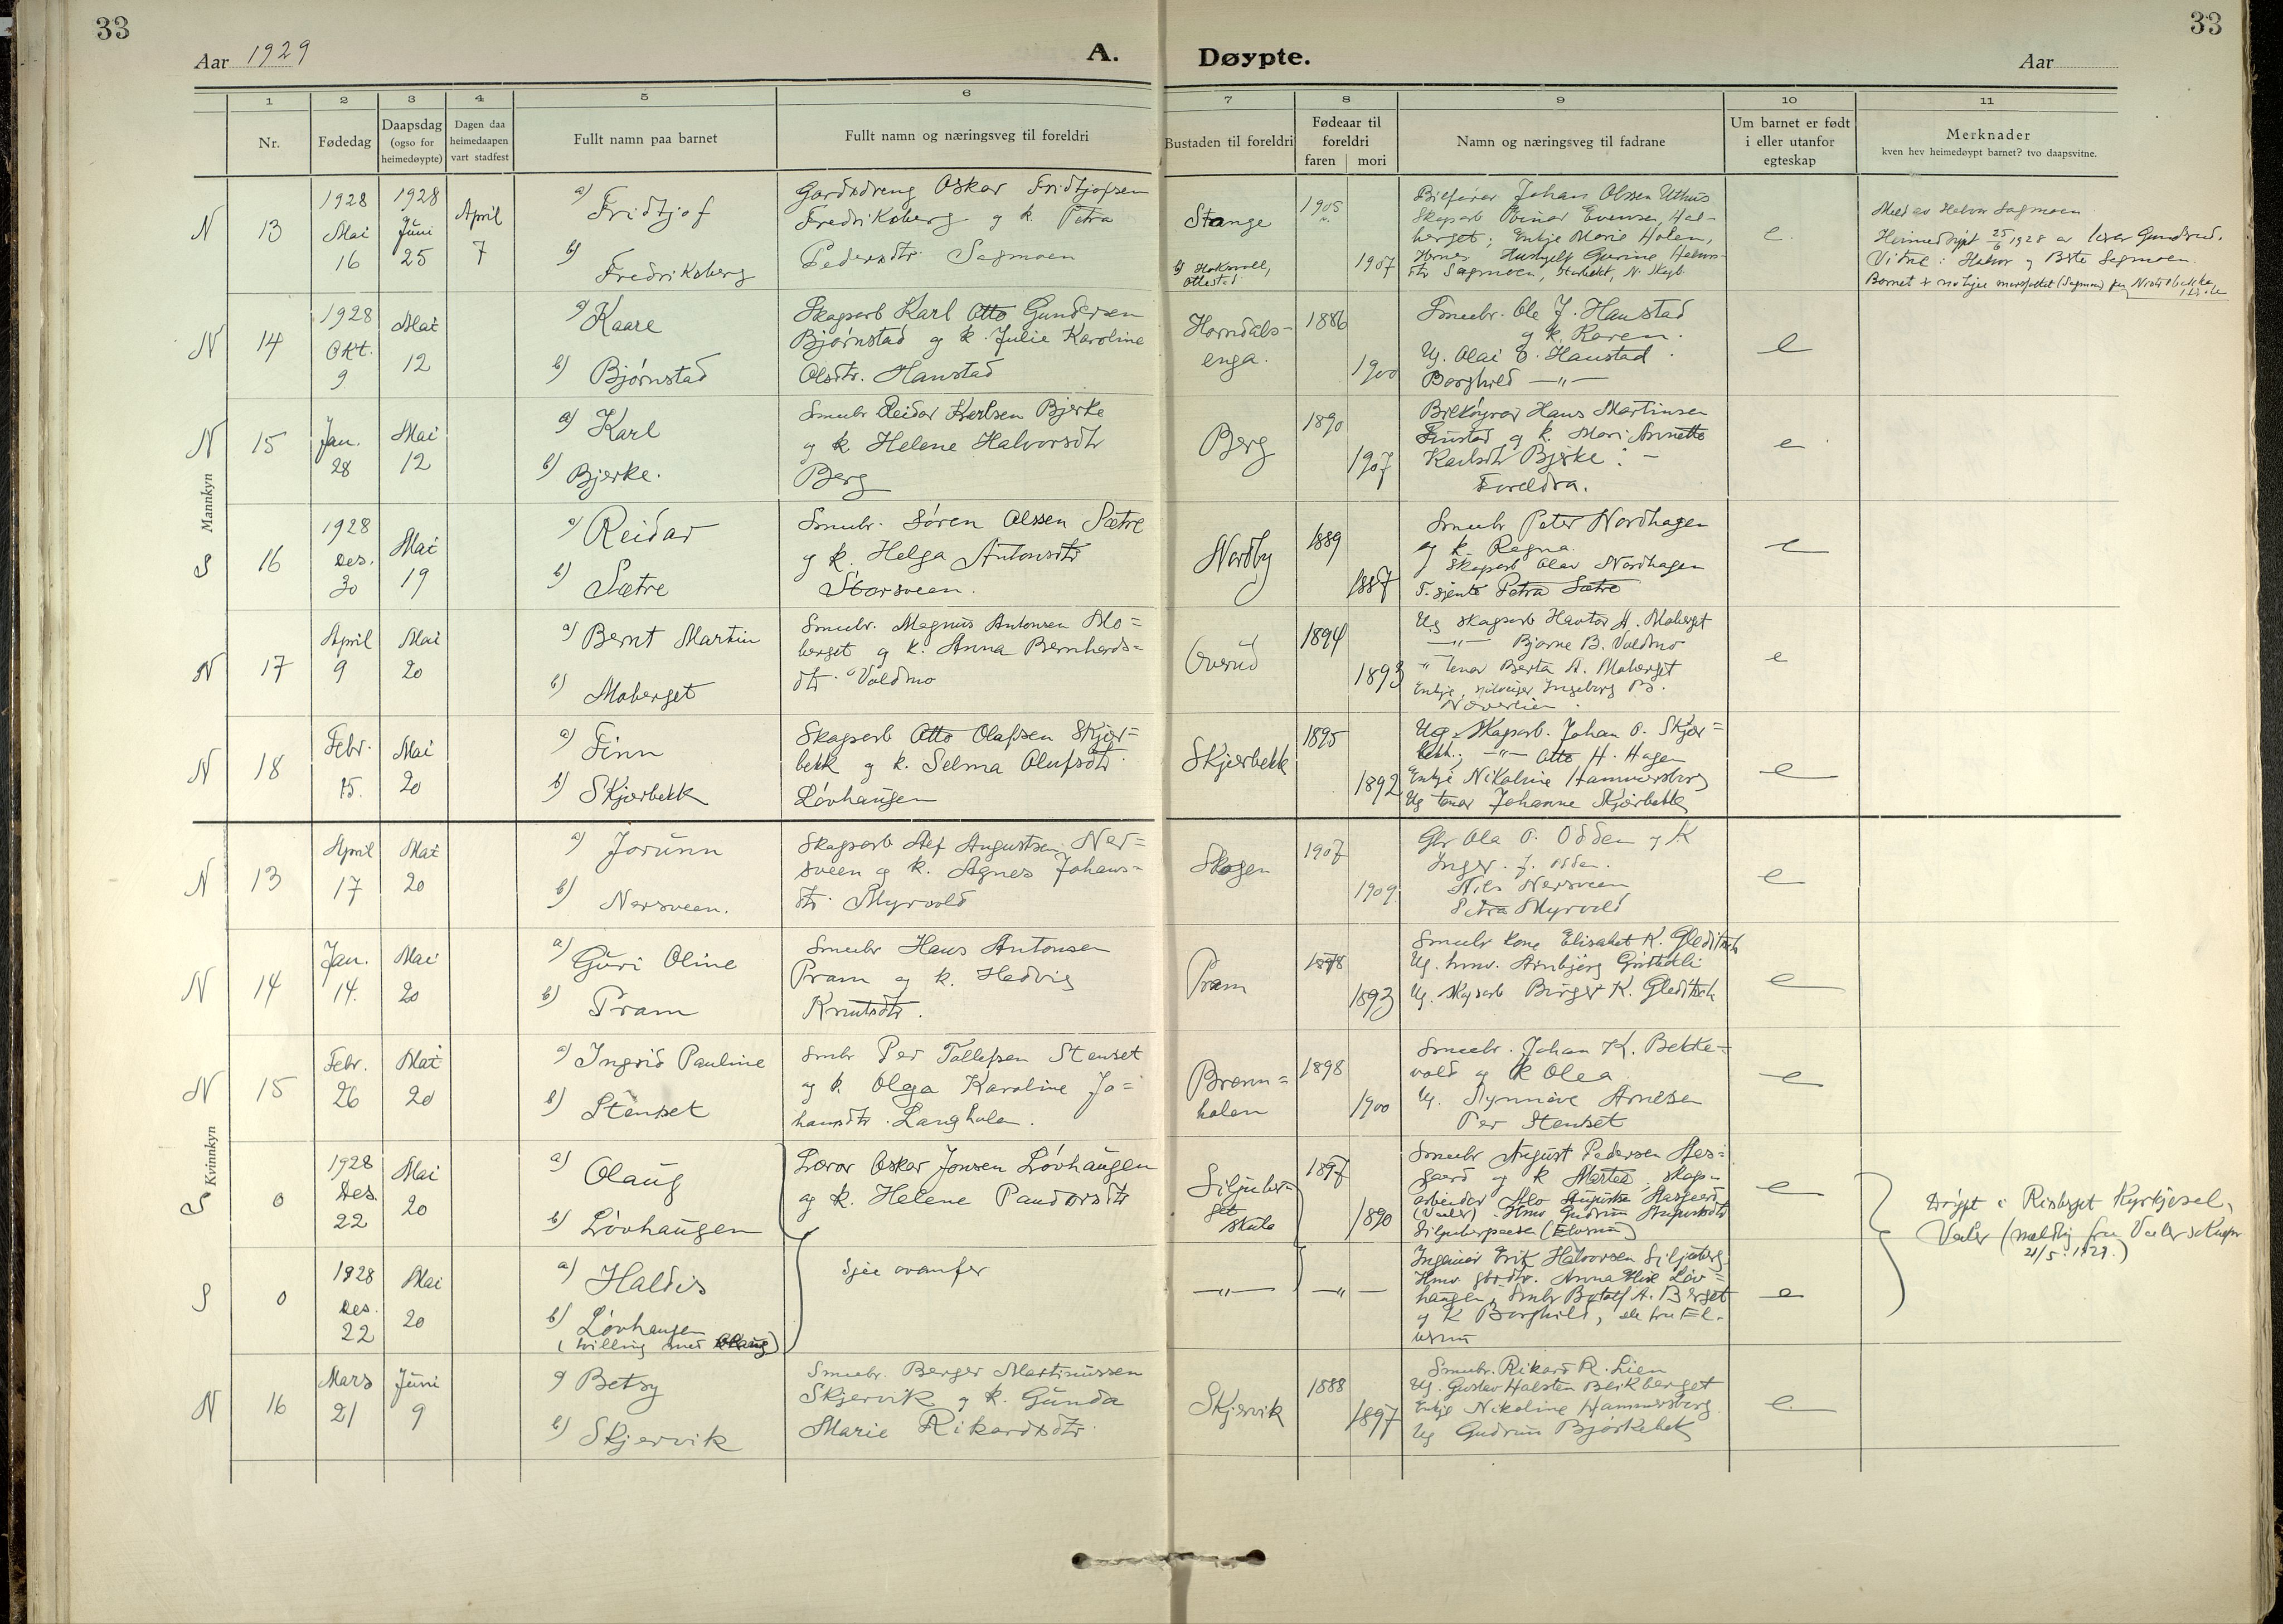 33
33
Aar 1929
A. Døypte.
Aar
1
2
3
4
5
6
7
8
9
10
11
Nr.
Fødedag
Daapsdag (ogso for heimedøypte)
Dagen daa heimedaapen vart stadfest
Fullt namn paa barnet
Fullt namn og næringsveg til foreldri
Bustaden til foreldri
Fødeaar til foreldri
faren
mori
Namn og næringsveg til fadrane
Um barnet er født i eller utanfor egteskap
Merknader
kven hev heimedøypt barnet? tvo daapsvitne.
Mannkyn
N 13
1928 Mai 16
1928 Juni 25
April 7
a) Fridtjof
b) Fredriksberg
Gardsdreng Oskar Fridtjofsen
Fredriksberg og k. Petra
Pedersdtr. Sagmoen
Stange
Ottestad
1905
1907
Bilførar Johan Olssen Uthus
Skogsarb Einar Evensen, Hal-
berget; Enkje Marie Holen,
e.
Meld av Halvor Sagmoen
Heimedøypt 25/6 1928 av
Vitne: Halvor og Sagmoen
N 14
1928 Okt. 9
Mai 12
a) Kaare
b) Bjørnstad
Skogsarb Karl Otto Gundersen
Bjørnstad og k. Julie Karoline
Olsdtr. Haustad
Horndals-
enga.
1886
1900
Smbr. Ole J. Haustad
og k. Karen.
Ug. Olai E. Haustad
Borghild —"—
e
N 15
Jan. 28
Mai 12
a) Karl
b) Bjerke.
Smbr Reidar Karlsen Bjerke
og k. Helene Halvorsdtr
Berg
Berg
1890
1907
Bilkøyrar Hans Martinsen
og k. Mari Annette
Karlsdtr Bjerke: -
Foreldra.
e
S 16
1928 Des. 30
Mai 19
a) Reidar
b) Sætre
Smbr. Søren Olssen Sætre
og k. Helga Antonsdtr
Storsveen.
Nordby
1889
1887
Smbr Peter Nordhagen
og k. Ragna
Skogsarb Olav Nordhagen
T.gjente Petra Sætre
e
N 17
April 9
Mai 20
a) Bernt Martin
b) Moberget
Smbr. Magnus Antonsen Mo=
berget og k. Anna Bernhards=
dtr. Voldmo
Øverud
1894
1893
Ug skogsarb A. Moberget
—"— Bjarne B. Voldmo
" Berta A. Moberget
Enkje, Ingeborg B.
e
N 18
Febr. 15.
Mai 20
a) Finn
b) Skjærbekk
Skogsarb Otto Olafsen Skjær=
bekk og k. Selma Olufsdtr.
Løvhaugen
Skjærbekk
1895
1892
Ug. Skogsarb. Johan O. Skjær=
bekk; —"— Otto H. Hagen
Enkje Nikoline Hammersberg
Ug Johanne Skjærbekk
e
Kvinnkyn
N 13
April 17
Mai 20
a) Jorunn
b) Nersveen.
Skogsarb Alf Augustsen Ner=
sveen og k. Agnes Johans=
dtr. Myrvold
Skogen
1907
1909
Gbr Ola O. Odden og k
Inger J. Odden.
Nils Nersveen
Petra Myrvold
e
N 14
Jan. 14.
Mai 20
a) Guri Oline
b) Pram
Smbr Hans Antonsen
Pram og k. Hedvig
Knutsdtr.
Pram
1893
Smbr kone Elisabet K. Gleditsch
Ug. hmv. Arnbjørg
Ug. Skogsarb Birger K. Gleditsch
e
N 15
Febr. 26
Mai 20
a) Ingrid Pauline
b) Stenset
Smbr Per Tollefsen Stenset
og k Olga Karoline Jo=
hansdtr. Langholen.
holen
1898
1900
Smbr. Johan K. Bekke=
vold og k Olea
Ug. Synnøve Arnesen
Per Stenset
e
S 0
1928 Des. 22
Mai 20
a) Olaug
b) Løvhaugen
Lærar Oskar Jonsen Løvhaugen
og k. Helene Paudersdtr
Siljuber-
get
skule
1897
1890
Smbr August Pedersen Aas-
gaard og k Martea, skogs-
arbeidar
(Elverum)
e
Døypt i Risberget Kyrkjesokn,
Vaaler
21/5 1929.)
S 0
1928 Des. 22
Mai 20
a) Haldis
b) Løvhaugen
(tvilling med Olaug)
Sjaa ovanfor
—"—
—"—
Erik Halvorsen Siljuberg
Anna Løv=
haugen, Smbr A. Berget
og k Borghild, alle fraa El-
verum
e
N 16
Mars 21
Juni 9
a) Betsy
b) Skjervik
Smbr. Berger Martinussen
Skjervik og k. Gunda
Marie Rikardsdtr.
Skjervik
1888
1897
Smbr. Rikard R. Lien
Ug. Gustav Halsten Berkberget
Enkje Nikoline Hammersberg
Ug Gudrun Bjørkebek
e